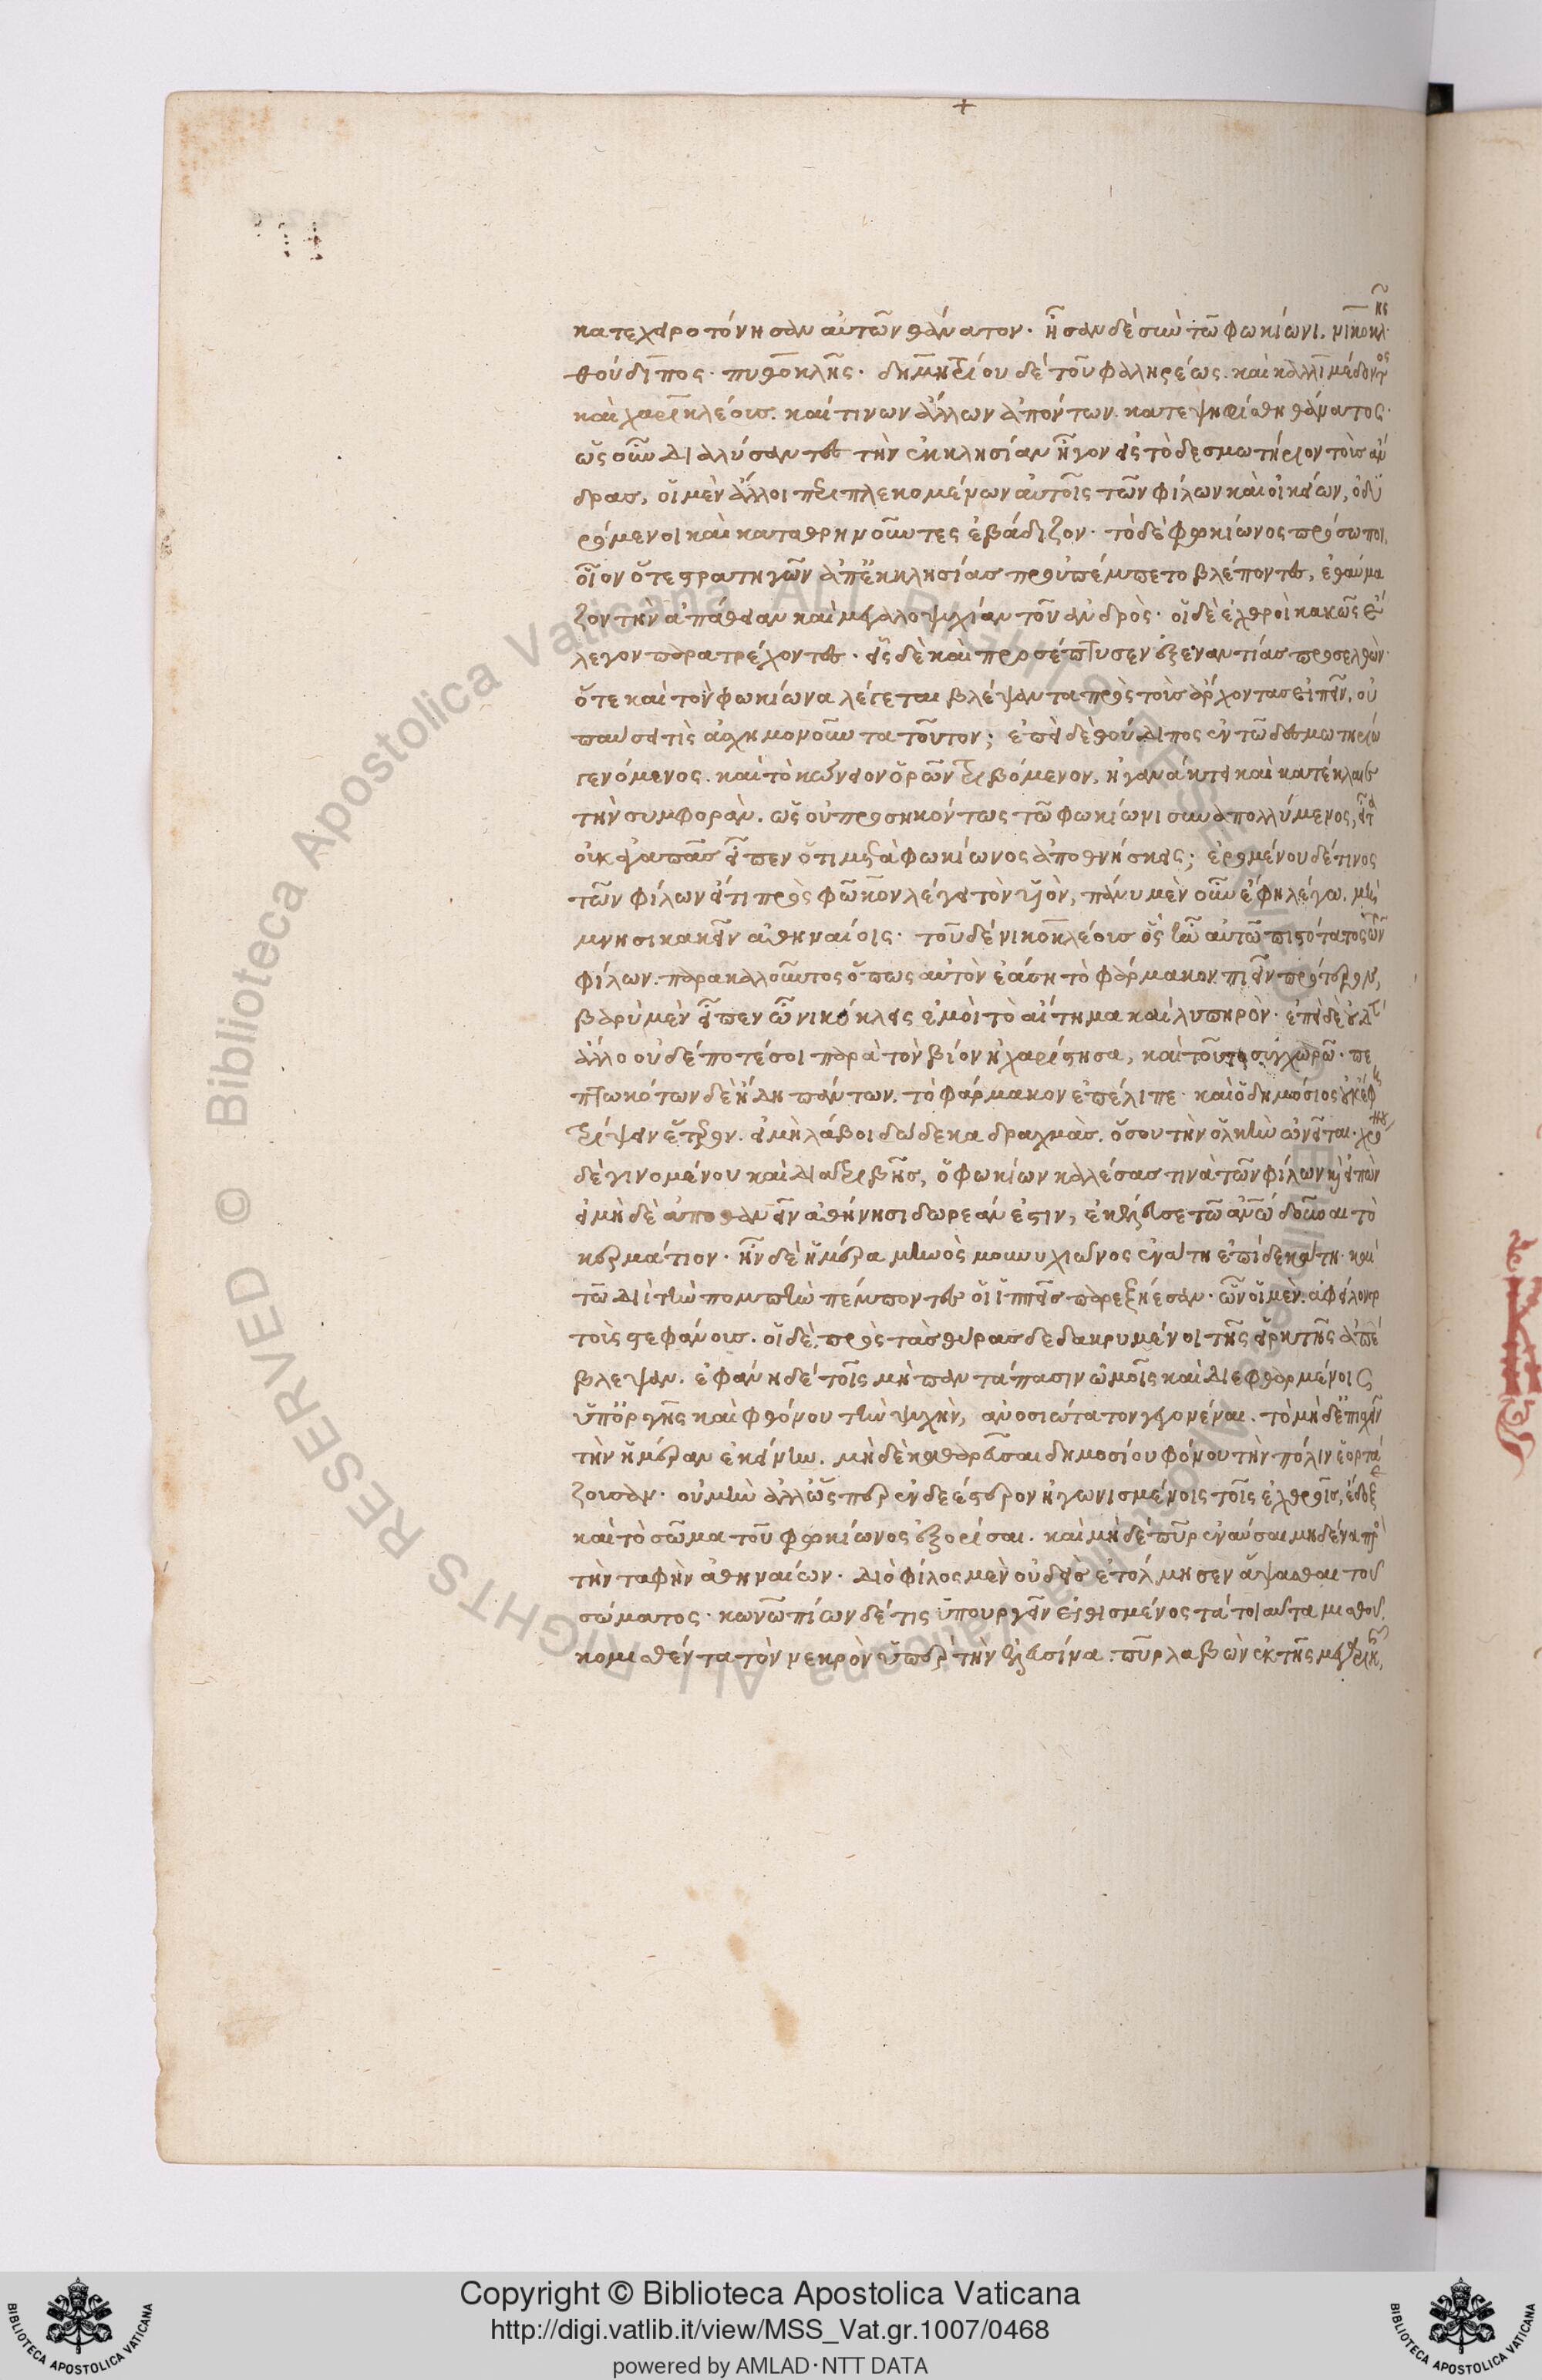 κατεχειροτόνησαν αὐτῶν θάνατον· ἦσαν δὲ σὺν τῷ φωκίωνι. νικοκλῆς
θούδιπος· πυθοκλῆς· δημητρίου δὲ τοῦ φαληρέως. καὶ καλλιμέδοντος
καὶ χαρικλέους. καί τινων ἄλλων ἀπόντων. κατεψηφίσθη θάνατος·
ὡς οὖν διαλύσαντες τὴν ἐκκλησίαν ἦγον εἰς τὸ δεσμωτήριον τοὺς ἄν
δρας, οἱ μὲν ἄλλοι περιπλεκομένων αὐτοῖς τῶν φίλων καὶ οἰκείων, ὀδυ
ρόμενοι καὶ καταθρηνοῦντες ἐβάδιζον· τὸ δὲ φωκίωνος πρόσωπον,
οἷον ὅτε στρατηγῶν ἀπ' ἐκκλησίας προὐπέμπετο βλέποντες, ἐθαύμα
ζον τὴν ἀπάθειαν καὶ μεγαλοψυχίαν τοῦ ἀνδρὸς· οἱ δὲ ἐχθροὶ κακῶς ἔ
λεγον παρατρέχοντες· εἷς δὲ καὶ προσέπτυσεν ἐξεναντίας προσελθών·
ὅτε καὶ τὸν φωκίωνα λέγεται βλέψαντα πρὸς τοὺς ἄρχοντας εἰπεῖν, οὐ
παύσει τὶς ἀσχημονοῦντα τοῦτον; ἐπεὶ δὲ θούδιπος ἐν τῷ δεσμωτηρίω
γενόμενος. καὶ τὸ κώνειον ὁρῶν τριβόμενον, ἠγανάκτει καὶ κατέκλαιε
τὴν συμφοράν. ὡς οὐ προσηκόντως τῷ φωκίωνι συναπολλύμενος, εἶτα
οὐκ ἀγαπᾶς εἶπεν ὅτι μετὰ φωκίωνος ἀποθνήσκεις; ἐρομένου δέ τινος
τῶν φίλων εἴ τι πρὸς φῶκον λέγει τὸν υἱὸν, πάνυ μὲν οὖν ἔφη λέγω. μὴ
μνησικακεῖν ἀθηναίοις· τοῦ δὲ νικοκλέους ὃς ἦν αὐτῷ πιστότατος τῶν
φίλων. παρακαλοῦντος ὅπως αὐτὸν ἐάσῃ τὸ φάρμακον πιεῖν πρότερον,
βαρὺ μὲν εἶπεν ὦ νικόκλεις ἐμοὶ τὸ αἴτημα καὶ λυπηρὸν· ἐπεὶ δὲ οὐδ'
ἄλλο οὐδέποτέ σοι παρὰ τὸν βίον ἠχαρίστησα, καὶ τοῦτο συγχωρῶ· πε
πτωκότων δὲ ἤδη πάντων. τὸ φάρμακον ἐπέλιπε· καὶ ὁ δημόσιος οὐκ ἔφη
τρίψειν ἕτερον. εἰ μὴ λάβοι δώδεκα δραχμὰς. ὅσου τὴν ὁλκὴν ὠνεῖται· χρόνου
δὲ γινομένου καὶ διατριβῆς, ὁ φωκίων καλέσας τινὰ τῶν φίλων καὶ εἰπὼν
εἰ μὴ δὲ ἀποθανεῖν ἀθήνησι δωρεάν ἐστιν, ἐκέλευσε τῷ ἀνθρώπῳ δοῦναι τὸ
κερμάτιον· ἦν δὲ ἡμέρα μηνὸς μουνυχιῶνος ἐνάτη ἐπὶ δεκάτη· καὶ
τῷ διὶ τὴν πομπὴν πέμποντες οἱ ἱππεῖς παρεξήεσαν· ὧν οἱ μὲν. ἀφείλοντο
τοὺς στεφάνους. οἱ δὲ. πρὸς τὰς θύρας δεδακρυμένοι τῆς εἱρκτῆς ἀπέ
βλεψαν. ἐφάνη δὲ τοῖς μὴ παντάπασιν ὠμοῖς καὶ διεφθαρμένοις
ὑπὸ ὀργῆς καὶ φθόνου τὴν ψυχὴν, ἀνοσιώτατον γεγονέναι. τὸ μὴ δ' ἐπισχεῖν
τὴν ἡμέραν ἐκείνην. μὴ δὲ καθαρεῦσαι δημοσίου φόνου τὴν πόλιν ἑορτά
ζουσαν· οὐ μὴν ἀλλ' ὥσπερ ἐνδεέστερον ἠγωνισμένοις τοῖς ἐχθροῖς, ἔδοξε
καὶ τὸ σῶμα τοῦ φωκίωνος ἐξορίσαι. καὶ μὴ δὲ πῦρ ἐναῦσαι μηδένα πρὸς
τὴν ταφὴν ἀθηναίων· διὸ φίλος μὲν οὐδεὶς ἐτόλμησεν ἅψασθαι τοῦ
σώματος· κωνωπίων δέ τις ὑπουργεῖν εἰθισμένος τὰ τοιαῦτα μισθοῦ,
κομισθέντα τὸν νεκρὸν ὑπὲρ τὴν ἐλευσίνα. πῦρ λαβὼν ἐκ τῆς μεγαρικῆς,
Copyright © Biblioteca Apostolica Vaticana
http://digi.vatlib.it/view/MSS_Vat.gr.1007/0468
powered by AMLAD·NTT DATA